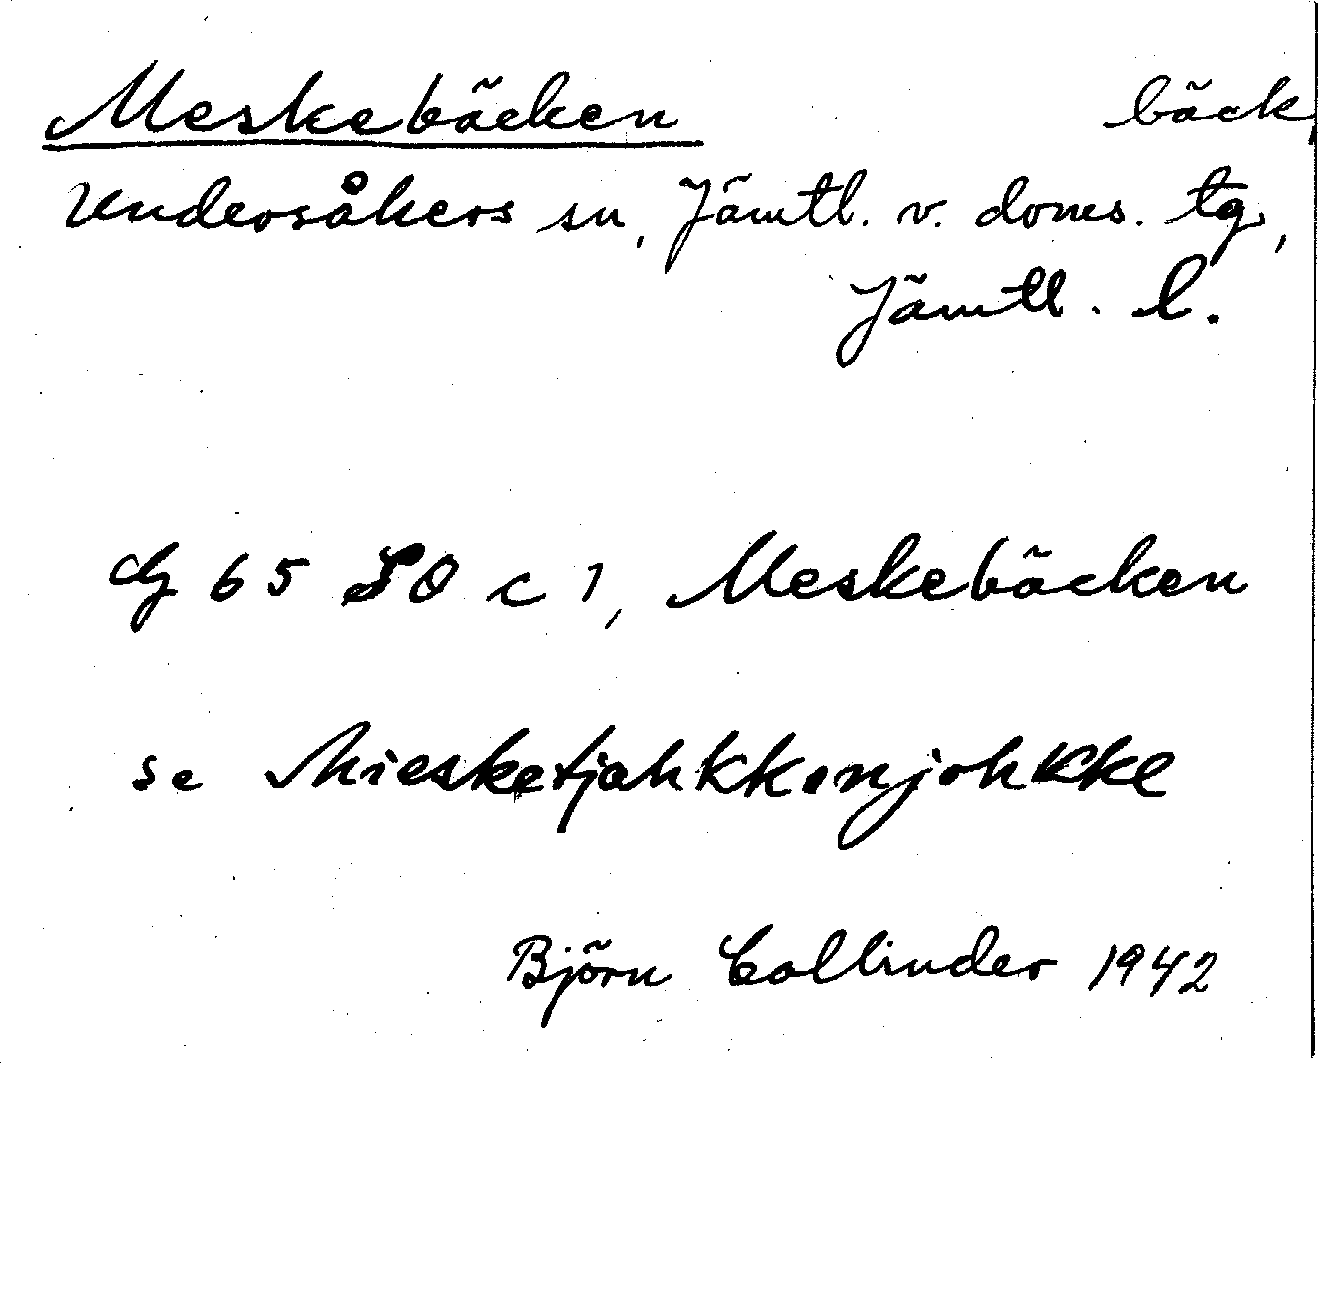 Meskebäcken bäck,
Undersåkers sn, Jämtl. v. doms. tg,
Jämtl. l.
G 65 SO c 1, Meskebäcken
se Miesketjahkkenjohkke
Björn Collinder 1942